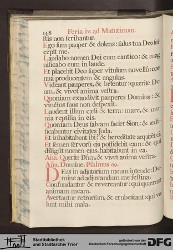 158 Feria iv. ad Matutinum.
Ego sum pauper & dolens: salus tua Deus
cepit me.
Laudabo nomen Dei cum cantico: & mag
nificabo eum in laude.
Et placebit Deo super vitulum novellum: cor
nua producentem & ungulas.
Videant pauperes, & lætentur: quærite De
um, & vivet anima vestra.
Quoniam exaudivit pauperes Dominus: &
vinctos suos non despexit.
Laudent illum cæli & terra: mare, & om
nia reptilia in eis.
Quoniam Deus salvam faciet Sion: & ædifi
cabuntur civitates Juda.
Et inhabitabunt ibi: & hereditate acquirent eam
Et semen servorum ejus possidebit eam: & qui
diligunt nomen ejus, habitabunt in ea.
Ana. Quærite Dnum, & vivet anima vestra.
Ana. Domine. Psalmus
Deus in adjutorium meum intende: Do
mine ad adjuvandum me festina.
Confundantur & revereantur: qui quærunt
animam meam.
Avertantur retrorsum, & erubescant: qui vo
lunt mihi mala.
Stadtbibliothek
und Stadtarchiv Trier
DFG